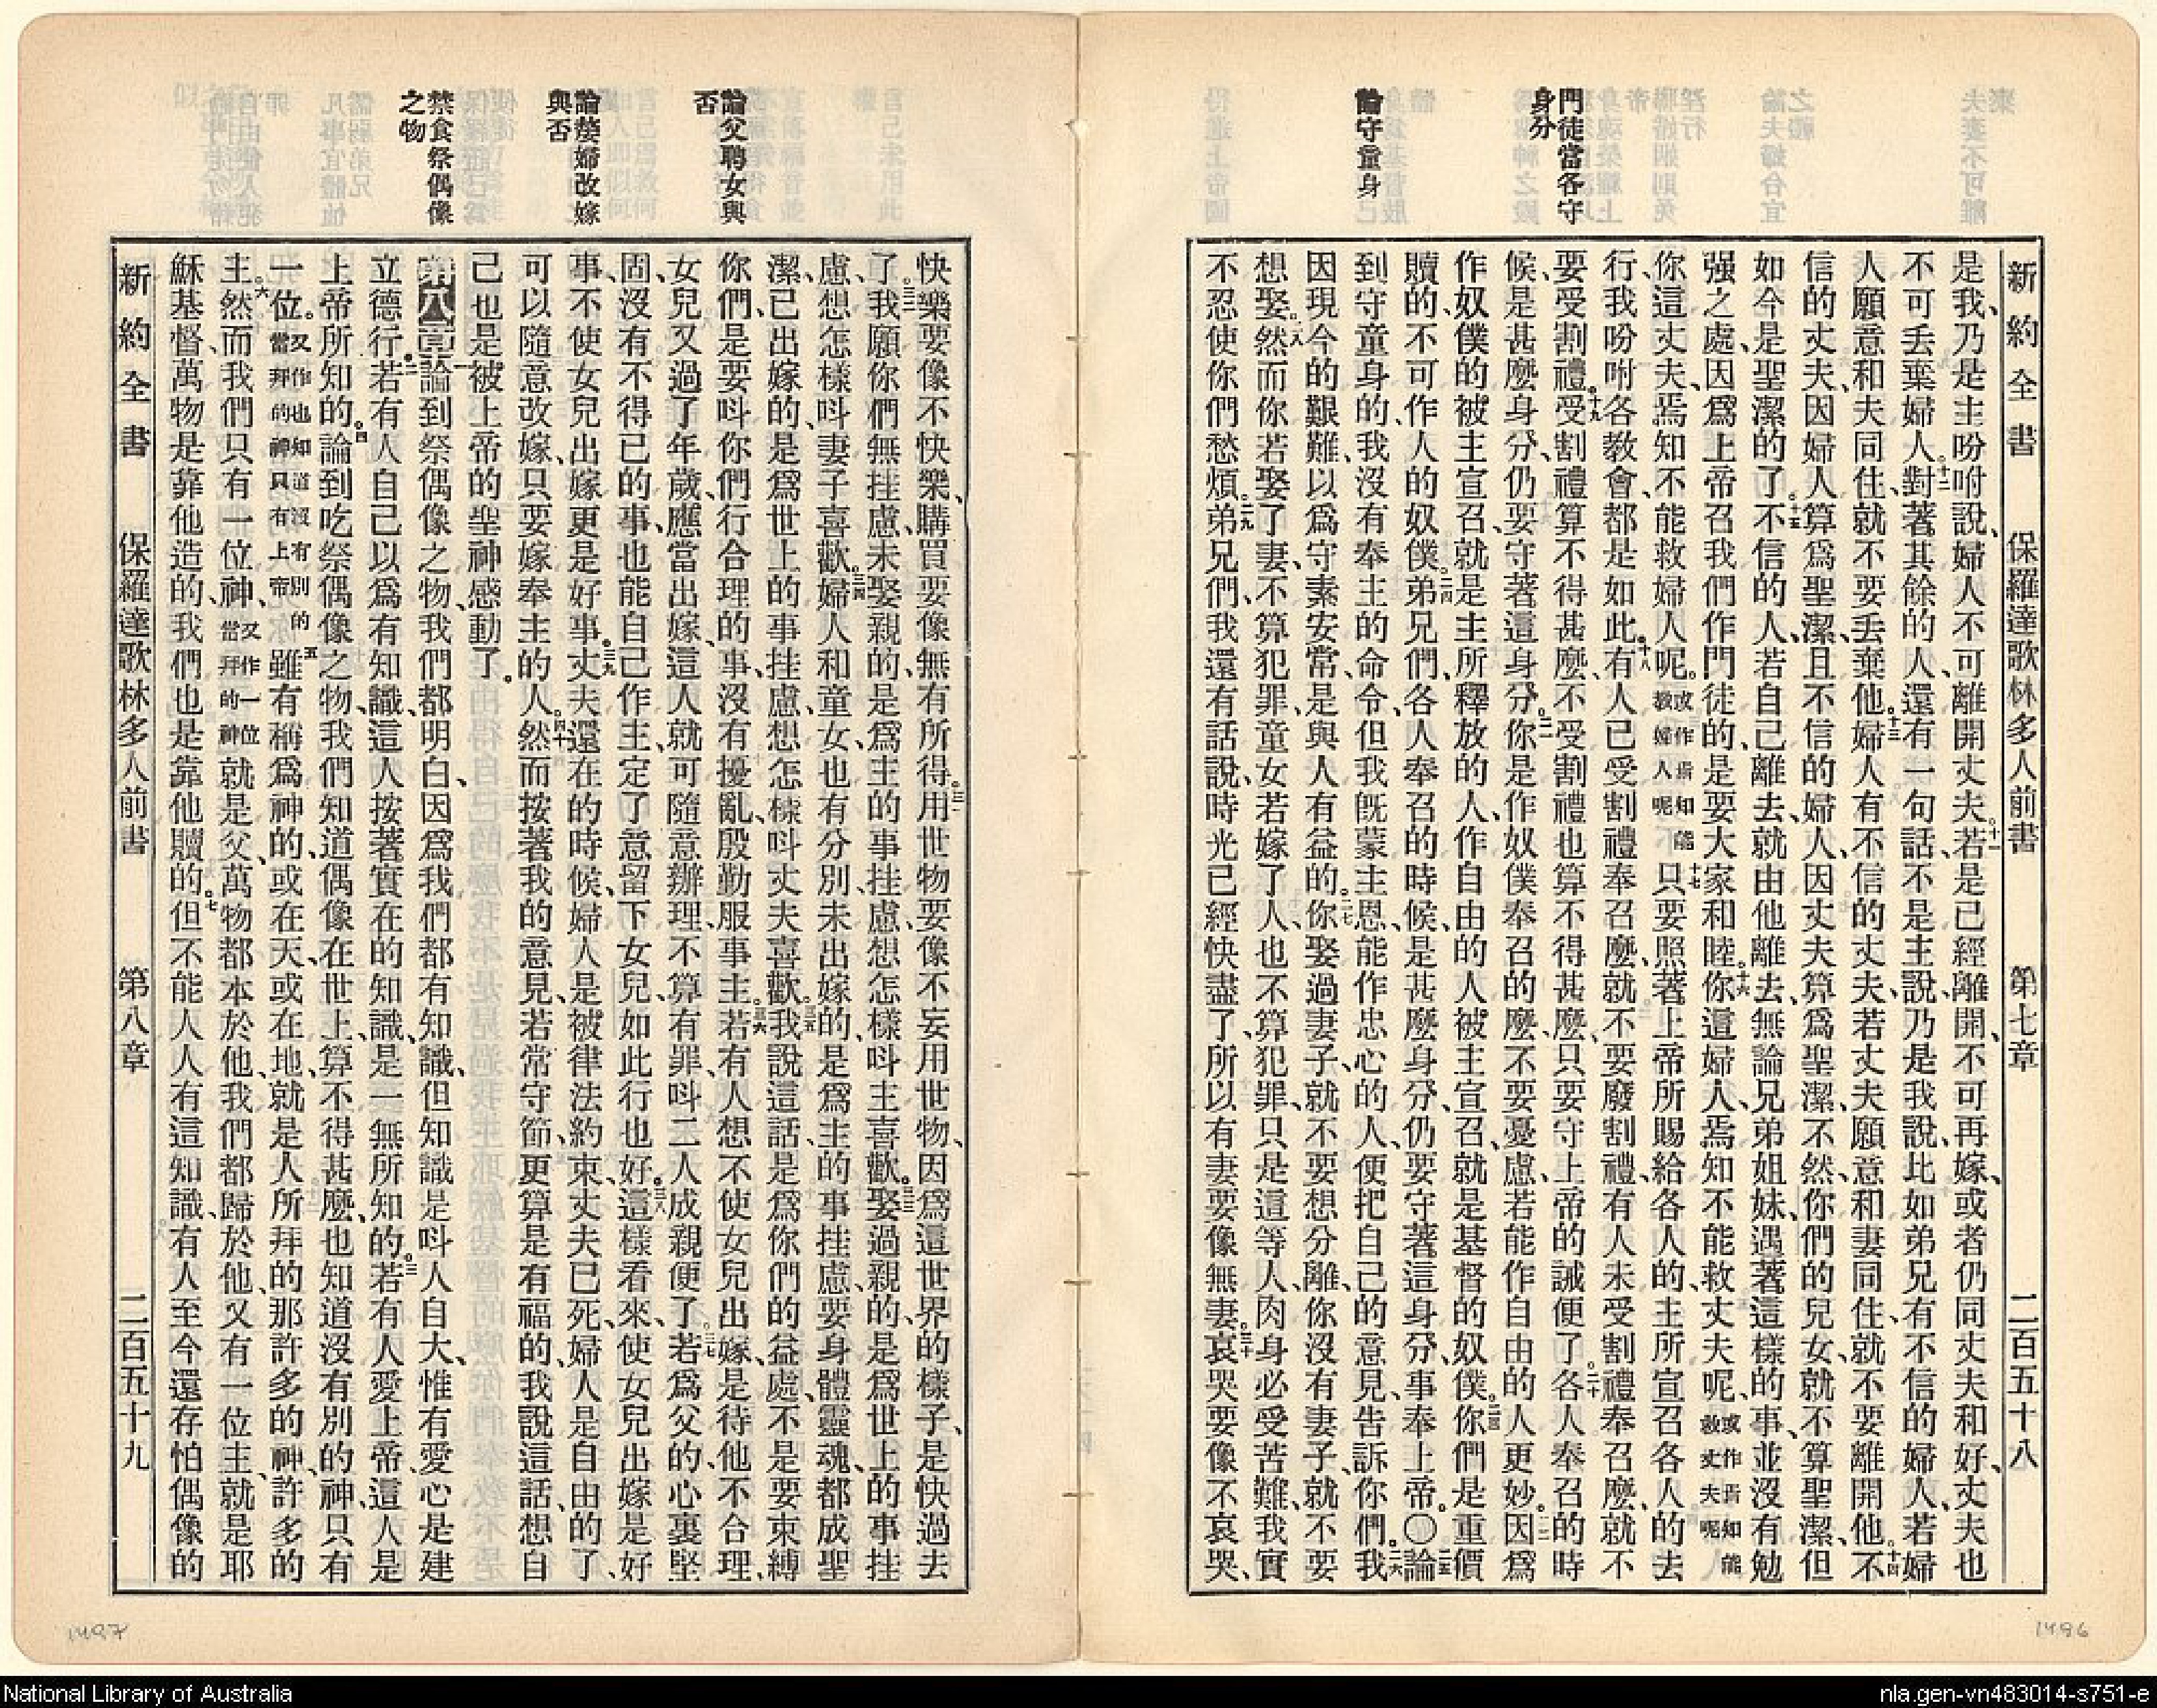 新約全書 保羅達歌林多人前書 第七章 二百五十八
門徒當各守
身分
論守童身
是我、乃是主吩咐說、婦人不可離開丈夫。十一若是已經離開、不可再嫁、或者仍同丈夫和好、丈夫也
不可丟棄婦人。十二對著其餘的人、還有一句話、不是主說、乃是我說、比如弟兄有不信的婦人、若婦
人願意和夫同住、就不要丟棄他。十三婦人有不信的丈夫、若丈夫願意和妻同住、就不要離開他。十四不
信的丈夫、因婦人算爲聖潔、且不信的婦人、因丈夫算爲聖潔、不然、你們的兒女、就不算聖潔、但
如今是聖潔的了。十五不信的人、若自己離去、就由他離去、無論兄弟姐妹、遇著這樣的事、並沒有勉
强之處、因爲上帝召我們作門徒的、是要大家和睦。十六你這婦人、焉知不能救丈夫呢、或作焉知能救丈夫呢
你這丈夫、焉知不能救婦人呢。或作焉知能救婦人呢十七只要照著上帝所賜給各人的、主所宣召各人的去
行、我吩咐各教會、都是如此。十八有人已受割禮奉召麼、就不要廢割禮、有人未受割禮奉召麼、就不
要受割禮。十九受割禮算不得甚麼、不受割禮也算不得甚麼、只要守上帝的誡便了。二十各人奉召的時
候、是甚麼身分、仍要守著這身分。二一你是作奴僕奉召的麼、不要憂慮、若能作自由的人更妙。二二因爲
作奴僕的、被主宣召、就是主所釋放的人、作自由的人、被主宣召、就是基督的奴僕。二三你們是重價
贖的、不可作人的奴僕。二四弟兄們、各人奉召的時候、是甚麼身分、仍要守著這身分、事奉上帝。〇二五論
到守童身的、我沒有奉主的命令、但我旣蒙主恩、能作忠心的人、便把自己的意見、告訴你們。二六我
因現今的艱難、以爲守素安常、是與人有益的。二七你娶過妻子、就不要想分離、你沒有妻子、就不要
想娶。二八然而你若娶了妻、不算犯罪、童女若嫁了人、也不算犯罪、只是這等人、肉身必受苦難、我實
不忍使你們愁煩。二九弟兄們、我還有話說、時光已經快盡了、所以有妻要像無妻。三十哀哭要像不哀哭、
論父聘女與
否
論嫠婦改嫁
與否
禁食祭偶像
之物
快樂要像不快樂、購買要像無有所得。三一用世物要像不妄用世物、因爲這世界的樣子、是快過去
了。三二我願你們無挂慮、未娶親的、是爲主的事挂慮、想怎樣呌主喜歡。三三娶過親的、是爲世上的事挂
慮、想怎樣呌妻子喜歡。三四婦人和童女、也有分別、未出嫁的、是爲主的事挂慮、要身體靈魂、都成聖
潔、已出嫁的、是爲世上的事挂慮、想怎樣呌丈夫喜歡。三五我說這話、是爲你們的益處、不是要束縛
你們、是要呌你們行合理的事、沒有擾亂、殷勤服事主。三六若有人想不使女兒出嫁、是待他不合理、
女兒又過了年歲、應當出嫁、這人就可隨意辦理、不算有罪、呌二人成親便了。三七若爲父的心裏堅
固、沒有不得已的事、也能自己作主、定了意留下女兒、如此行也好。三八這樣看來、使女兒出嫁是好
事、不使女兒出嫁、更是好事。三九丈夫還在的時候、婦人是被律法約束、丈夫已死、婦人是自由的了、
可以隨意改嫁、只要嫁奉主的人。四十然而按著我的意見、若常守節、更算是有福的、我說這話、想自
己也是被上帝的聖神感動了。
第八章 一論到祭偶像之物、我們都明白、因爲我們都有知識、但知識是呌人自大、惟有愛心是建
立德行。二若有人自己以爲有知識、這人按著實在的知識、是一無所知的。三若有人愛上帝、這人是
上帝所知的。四論到吃祭偶像之物、我們知道偶像在世上、算不得甚麼、也知道沒有別的神、只有
一位。又作也知道沒有別的當拜的神只有上帝五雖有稱爲神的、或在天、或在地、就是人所拜的那許多的神、許多的
主。六然而我們只有一位神、又作一位當拜的神就是父、萬物都本於他、我們都歸於他、又有一位主、就是耶
穌基督、萬物是靠他造的、我們也是靠他贖的。七但不能人人有這知識、有人至今還存怕偶像的
新約全書 保羅達歌林多人前書 第八章 二百五十九
1497
1496
National Library of Australia
nla.gen-vn483014-s751-e